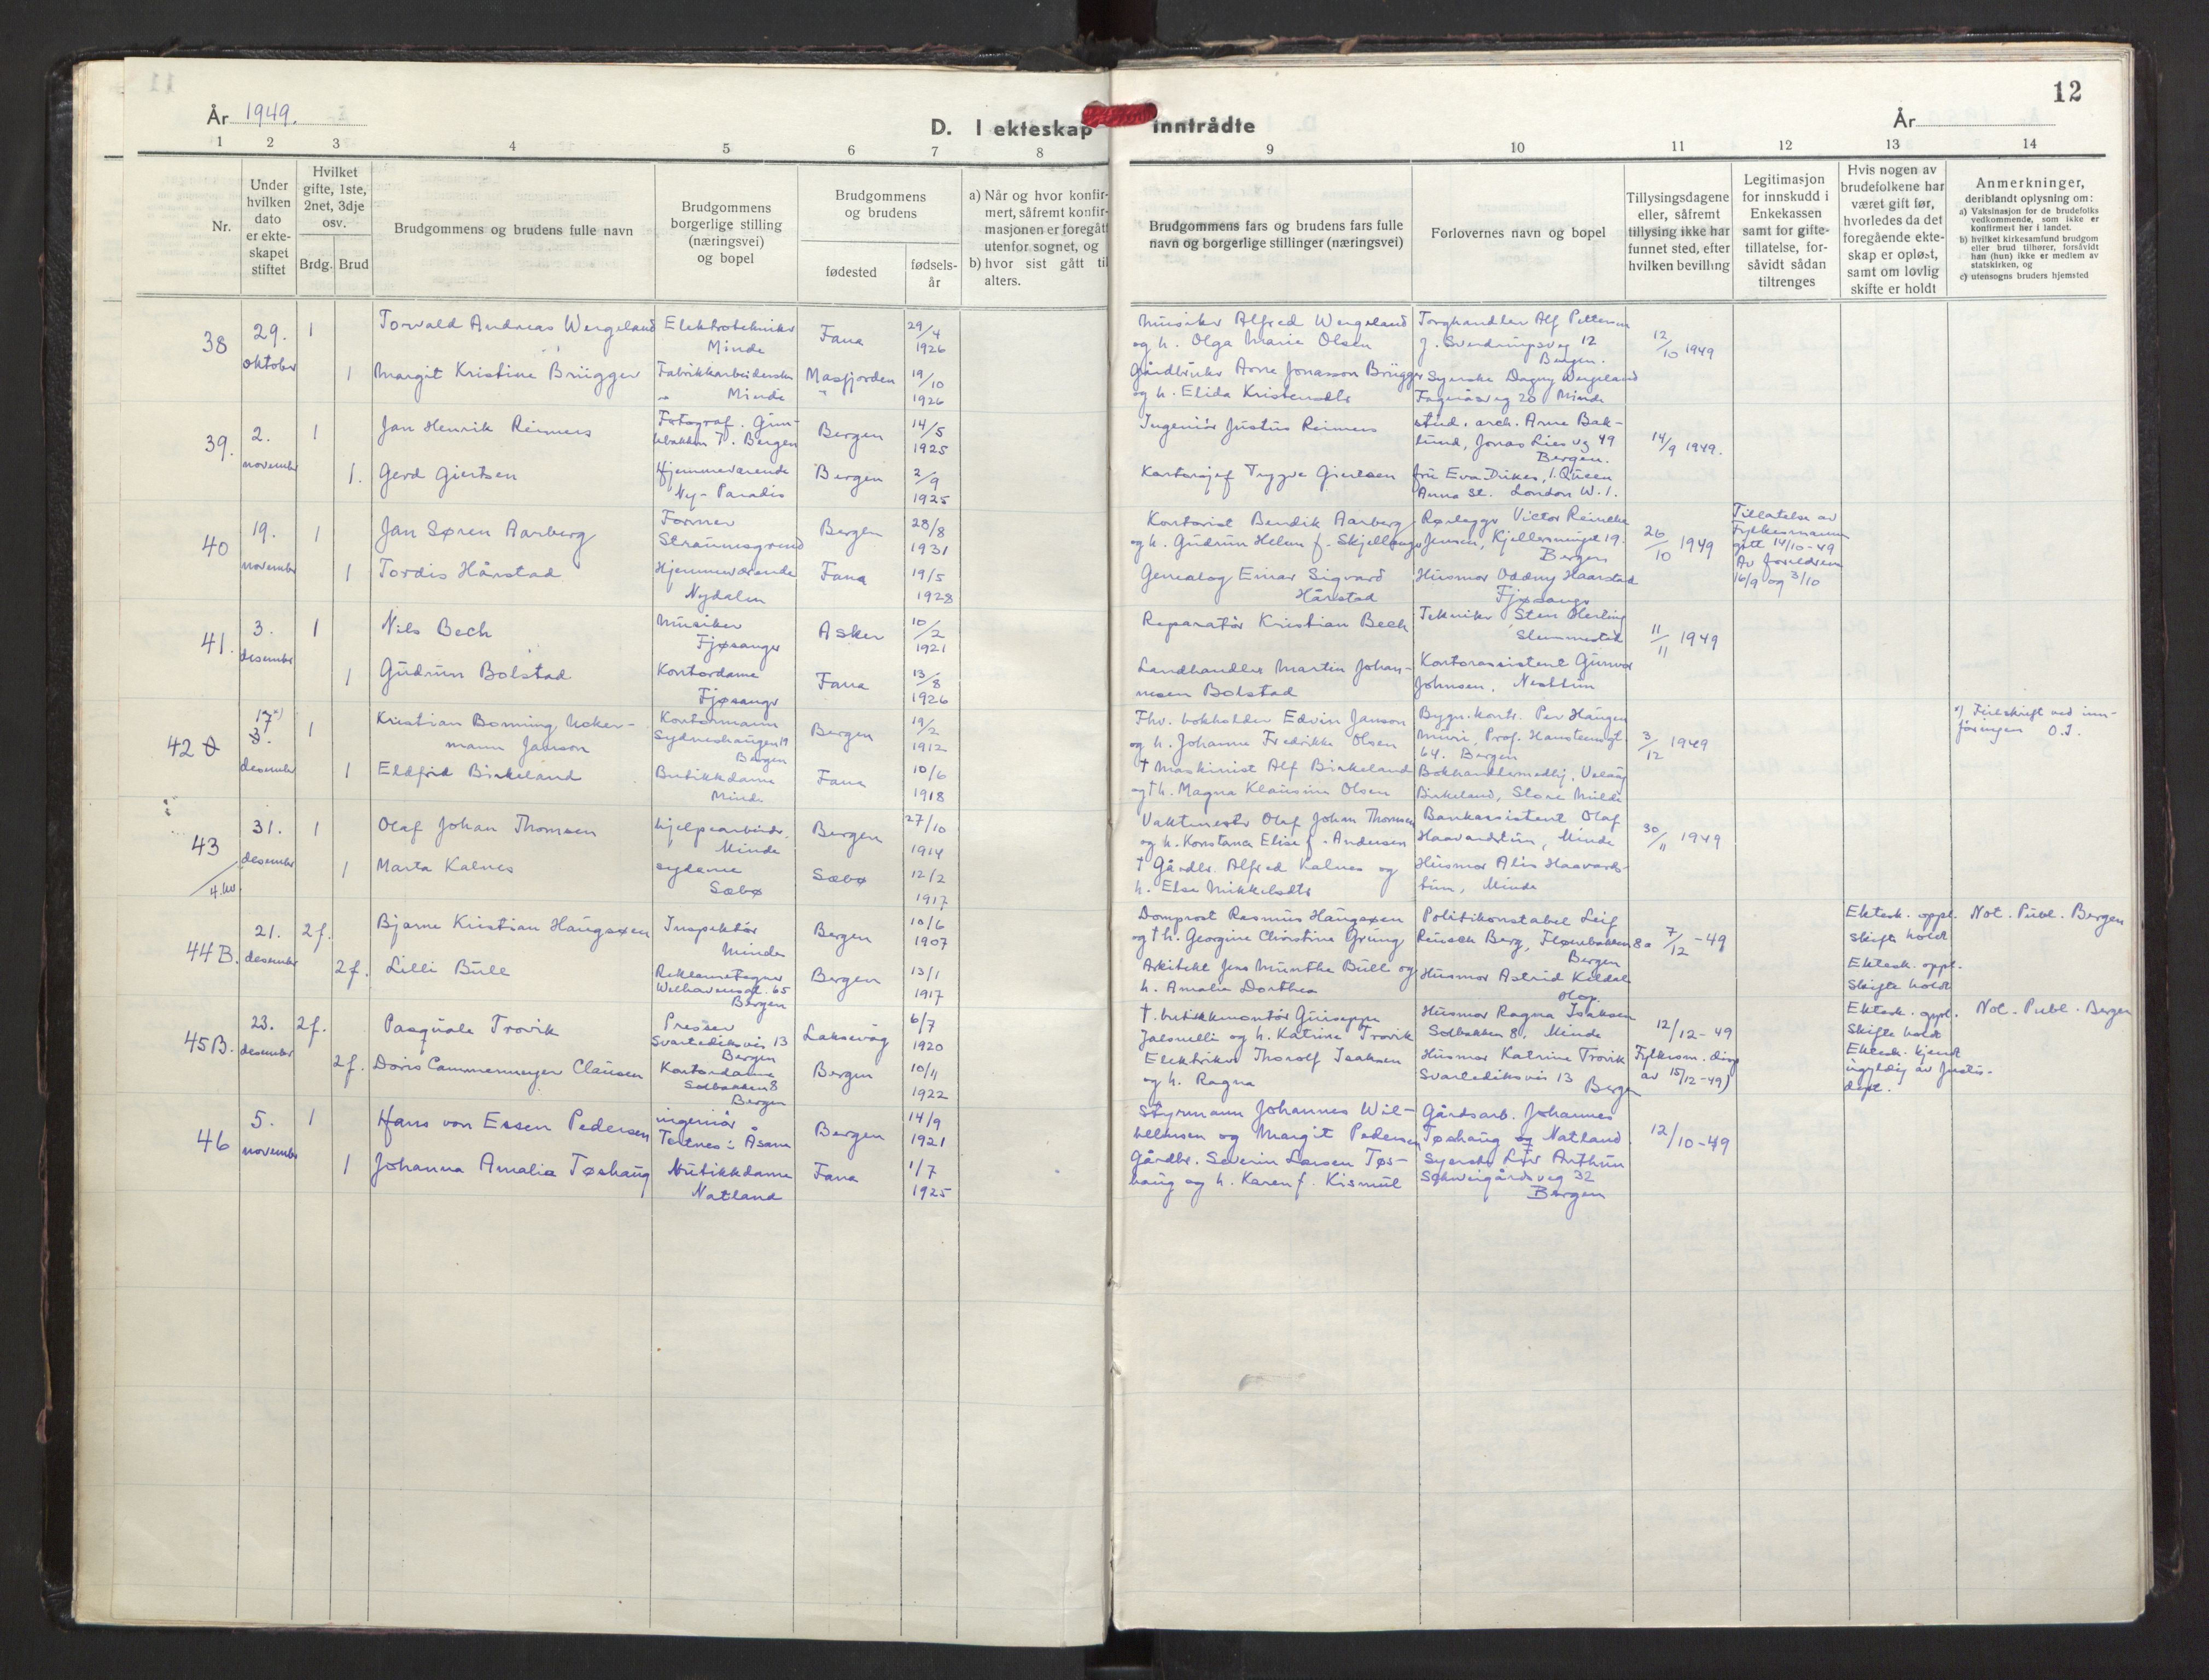 12
År 1949.
D. I ekteskap inntrådte
År
1 2 3 4 5 6 7 8 9 10 11 12 13 14
Nr.
Under
hvilken
dato
er ekte-
skapet
stiftet
Hvilket
gifte, 1ste,
2net, 3dje
osv.
Brdg. Brud
Brudgommens og brudens fulle navn
Brudgommens
borgerlige stilling
(næringsvei)
og bopel
Brudgommens
og brudens
fødested
fødsels-
år
a) Når og hvor konfir-
mert, såfremt konfir-
masjonen er foregått
utenfor sognet, og
b) hvor sist gått til
alters.
Brudgommens fars og brudens fars fulle
navn og borgerlige stillinger (næringsvei)
Forlovernes navn og bopel
Tillysingsdagene
eller, såfremt
tillysing ikke har
funnet sted, efter
hvilken bevilling
Legitimasjon
for innskudd i
Enkekassen
samt for gifte-
tillatelse, for-
såvidt sådan
tiltrenges
Hvis nogen av
brudefolkene har
været gift før,
hvorledes da det
foregående ekte-
skap er opløst,
samt om lovlig
skifte er holdt
Anmerkninger,
deriblandt oplysning om:
a) Vaksinasjon for de brudefolks
vedkommende, som ikke er
konfirmert her i landet.
b) hvilket kirkesamfund brudgom
eller brud tilhører, forsåvidt
han (hun) ikke er medlem av
statskirken, og
c) utensogns bruders hjemsted
38
29.
oktober
1
Torvald Andreas Wergeland
Elektrotekniker
Minde
Fana
29/4
1926
Musiker Alfred Wergeland
og h. Olga Marie Olsen
Torghandler Alf Pettersen
J. Sverdrupsveg 12
Bergen.
12/10 1949
1
Margit Kristine Brügger
Fabrikkarbeiderske
Minde
Masfjorden
19/10
1926
Gårdbruker Arne Jonasson Brügger
og h. Elida Kristensdtr
Syerske Dagny Wergeland
Fageråsveg 20 Minde
39.
2.
november
1
Jan Henrik Reimers
Fotograf.
7. Bergen
Bergen
14/5
1925
Ingeniør Justus Reimers
stud. arch. Arne Bak-
lund, Jonas Lies vg 49
Bergen.
14/9 1949.
1.
Gerd Giertsen
Hjemmeværende
Ny-Paradis
Bergen
2/9
1925
Kontorsjef Trygve Giertsen
fru Eva Dukes, 1. Queen
Anna St. London W.1.
40
19.
november
1
Jan Søren Aarberg
Former
Straumsgrend
Bergen
28/8
1931
Kontorist Bendik Aarberg
og h. Gudrun Helene f. Skjellanger
Rørlegger Victor Reincke
Jensen, Kjellersmuget 19.
Bergen
26/10 1949
Tillatelse av
Fylkesmannen
gitt 14/10-49
Av foreldrene
16/9 og 3/10
1
Tordis Hårstad
Hjemmeværende
Nydalen
Fana
19/5
1928
Genealog Einar Sigvard
Hårstad
Husmor Oddny Haarstad
Fjøsanger
41.
3.
desember
1
Nils Bech
Musiker
Fjøsanger
Asker
10/2
1921
Reparatør Kristian Bech
Tekniker Sten Herling
Slemmestad
11/11 1949
1
Gudrun Bolstad
Kontordame
Fjøsanger
Fana
13/8
1926
Landhandler Martin Johan-
nesen Bolstad
Kontorassistent Gunvor
Johnsen, Nesttun
42
17x)
3.
desember
1
Kristian Bonning Ucker-
mann Janson
Kontormann
Sydneshaugen 19
Bergen
Bergen
19/2
1912
Fhv. bokholder Edvin Janson
og h. Johanne Fredrikke Olsen
Bygn.kontr. Per Haugen
Muri, Prof. Hansteensgt
64. Bergen
3/12 1949
x) Feilskrift ved inn-
føringen O.J.
1
Eldfrid Birkeland
Butikkdame
Minde
Fana
10/6
1918
† Maskinist Alf Birkeland
og † h. Magna Klausine Olsen
Bokhandlermedhj.
Birkeland, Store Milde
43
31.
desember
1
Olaf Johan Thomsen
hjelpearbeider.
Minde
Bergen
27/10
1914
Vaktmester Olaf Johan Thomsen
og h. Konstance Elise f. Andersen
Bankassistent Olaf
Haavardstun, Minde
30/11 1949
4.
1
Marta Kalnes
sydame
Sæbø
Sæbø
12/2
1917
† Gårdbr. Alfred Kalnes og
h. Else Mikkelsdtr
Husmor Alis Haavards-
tun, Minde
44 B.
21.
desember
2 f.
Bjarne Kristian Haugsøen
Inspektør
Minde
Bergen
10/6
1907
Domprost Rasmus Haugsøen
og † h. Georgine Christine Grung
Politikonstabel Leif
Reusch Berg, Fløenbakken 8a
Bergen
7/12 -49
Ektesk. oppl.
Skifte holdt
Not. Publ. Bergen
2 f.
Lilli Bull
Reklametegner
Welhavensgt. 65
Bergen
Bergen
13/1
1917
Arkitekt Jens Munthe Bull og
h. Amalie Dorthea
Husmor Astrid Keldal
Hop.
Ektesk. oppl.
Skifte holdt
45 B.
23.
desember
2 f.
Pasquale Trovik
Presser
Svartediksvei 13
Bergen
Laksevåg
6/7
1920
†. butikkmontør Guiseppe
Jacomelli og h. Katrine Trovik
Husmor Ragna Isaksen
Solbakken 8, Minde
12/12 - 49
Ektesk. oppl.
Skifte holdt
Not. Publ. Bergen
2 f.
Doris Cammermeyer Clausen
Kontordame
Solbakken 8
Bergen
Bergen
10/11
1922
Elektriker Thorolf Isaksen
og h. Ragna
Husmor Katrine Trovik
Svartediksvei 13 Bergen
Fylkesm. disp
av 15/12-49)
Ektesk. kjendt
ugyldig av Justis-
dept.
46
5.
november
1
Hans von Essen Pedersen
ingeniør
Tertnes i Åsane
Bergen
14/9
1921
Styrmann Johannes Wil-
helmsen og Margit Pedersen
Gårdsarb. Johannes
Tøshaug og Natland
12/10 - 49
1
Johanna Amalia Tøshaug
Butikkdame
Natland
Fana
1/7
1925
Gårdbr. Severin Larsen Tøs-
haug og h. Karen f. Kismul
Syerske Liv Arthun
Schweigårdsveg 32
Bergen